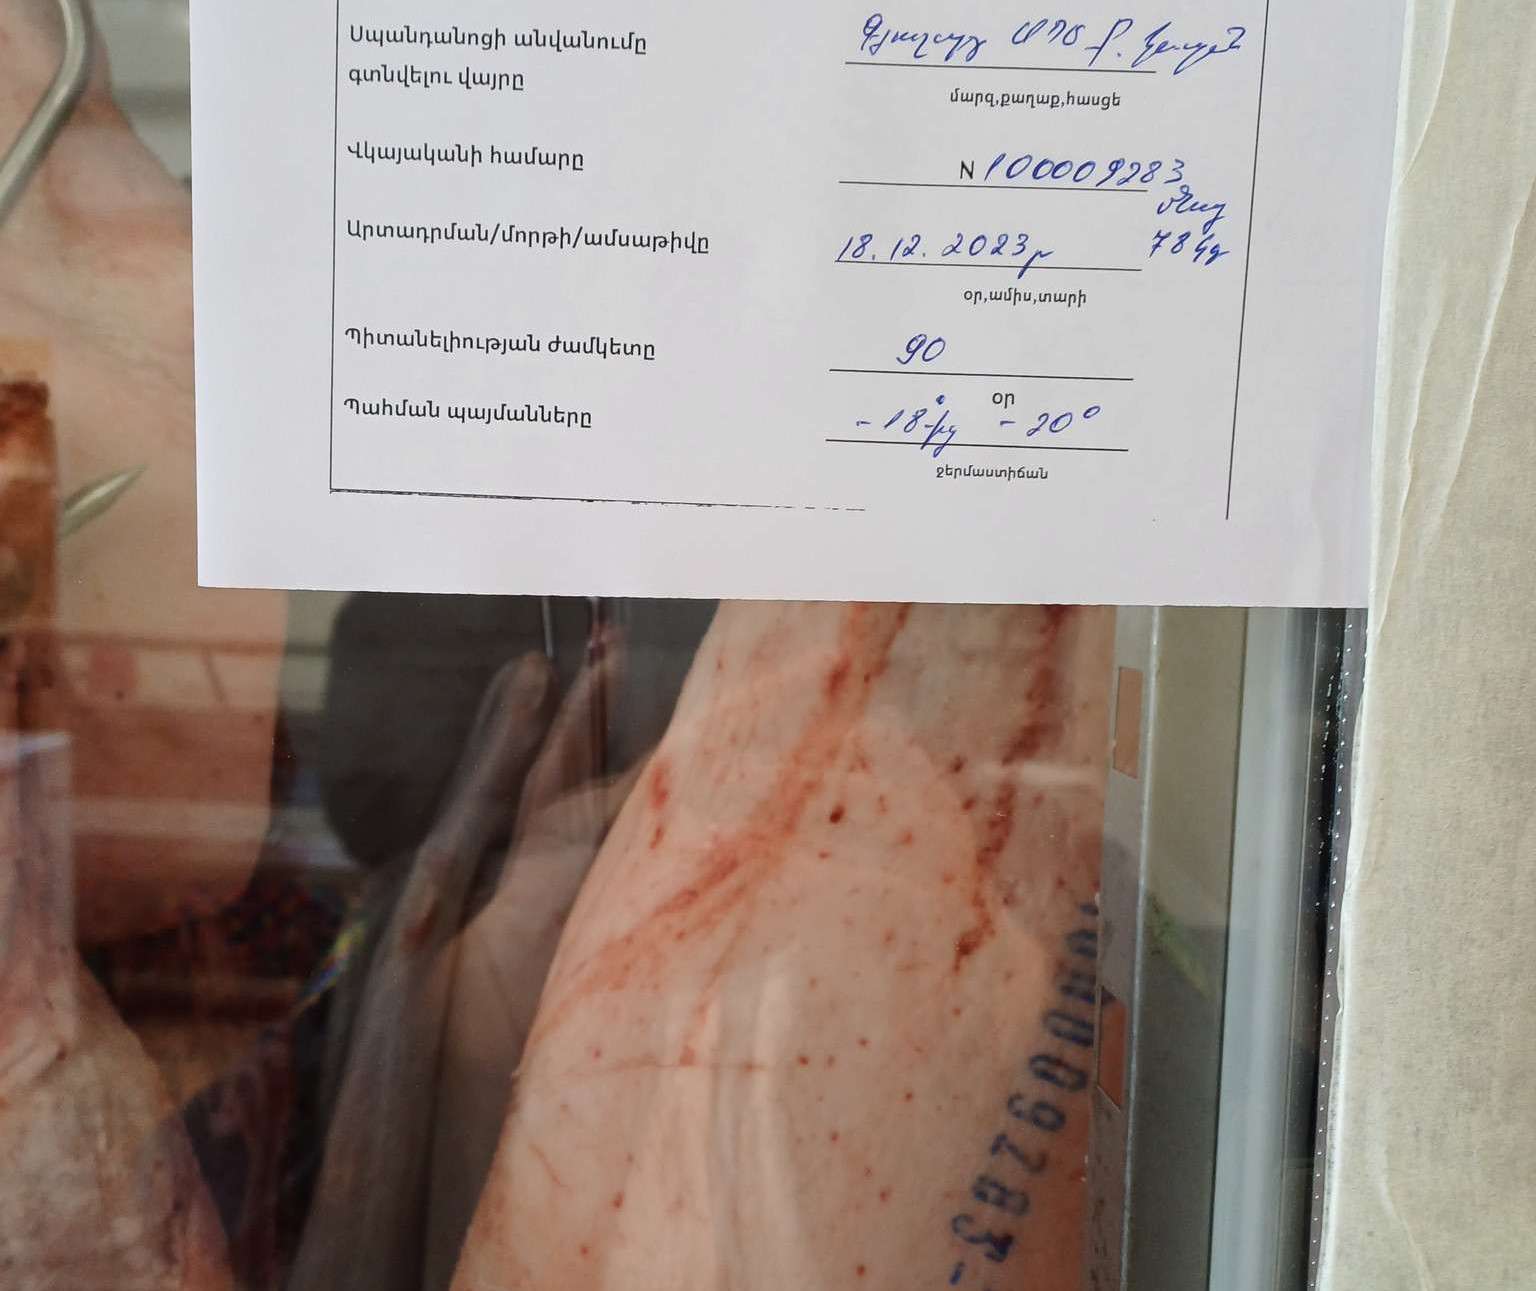 Սպանդանոցի անվանումը
գտնվելու վայրը
մարզ,քաղաք,հասցե
Վկայականի համարը N 100009283
Արտադրման/մորթի/ամսաթիվը 18.12.2023թ 78 կգ
օր,ամիս,տարի
Պիտանելիության ժամկետը 90
օր
Պահման պայմանները -18-ից -20°
ջերմաստիճան
100009283